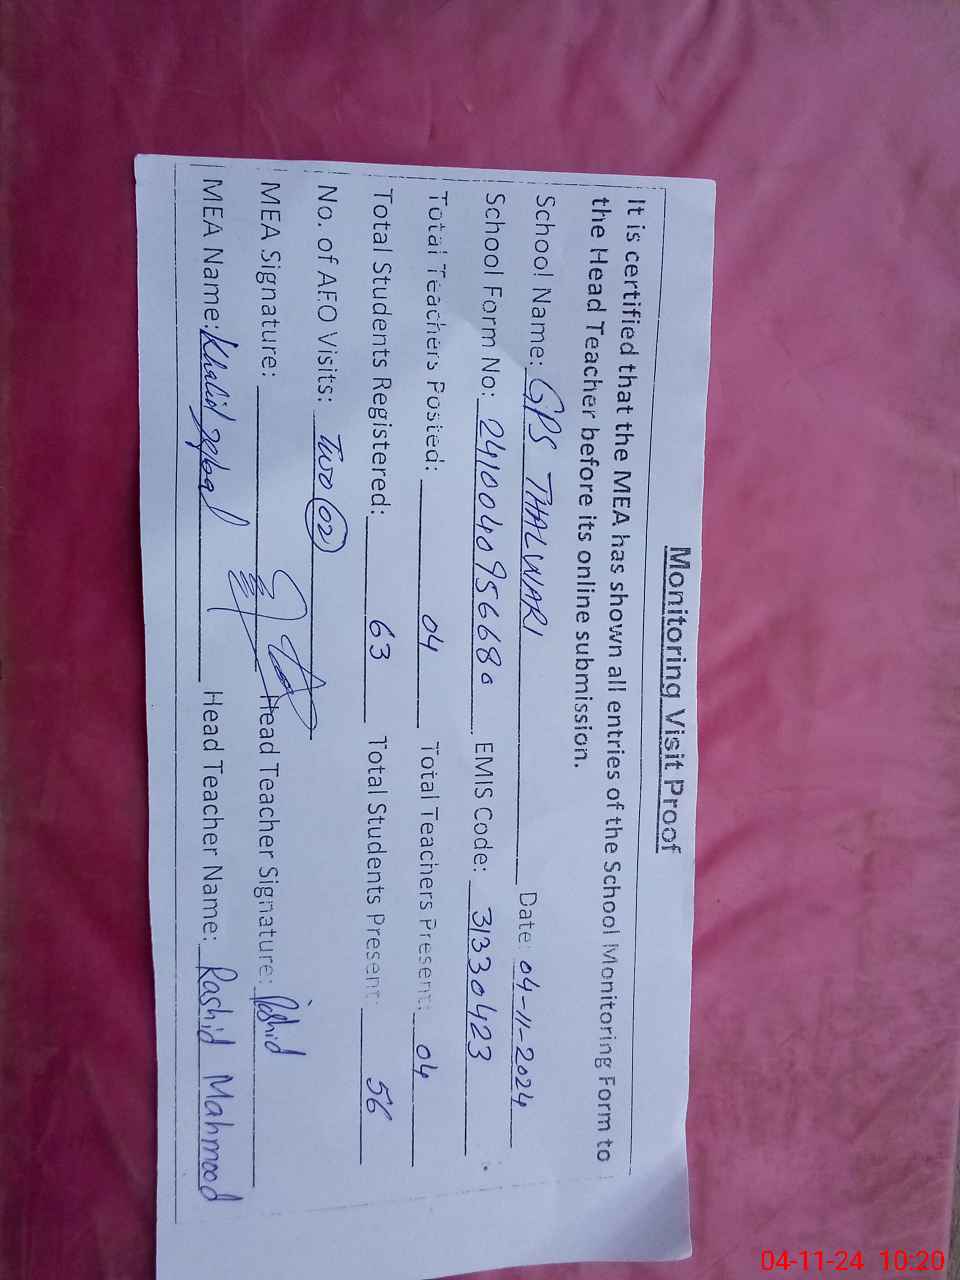 Monitoring Visit Proof
It is certified that the MEA has shown all entries of the School Monitoring Form to
the Head Teacher before its online submission.
School Name: GPS THALWARI Date: 04-11-2024
School Form No: 2410040956680 EMIS Code: 31330423
Total Teachers Posted: 04 Total Teachers Present: 04
Total Students Registered: 63 Total Students Present: 56
No. of AEO Visits: Two 02
MEA Signature: Head Teacher Signature: Rashid
MEA Name: Khalid Iqbal Head Teacher Name: Rashid Mahmood
04-11-24 10:20